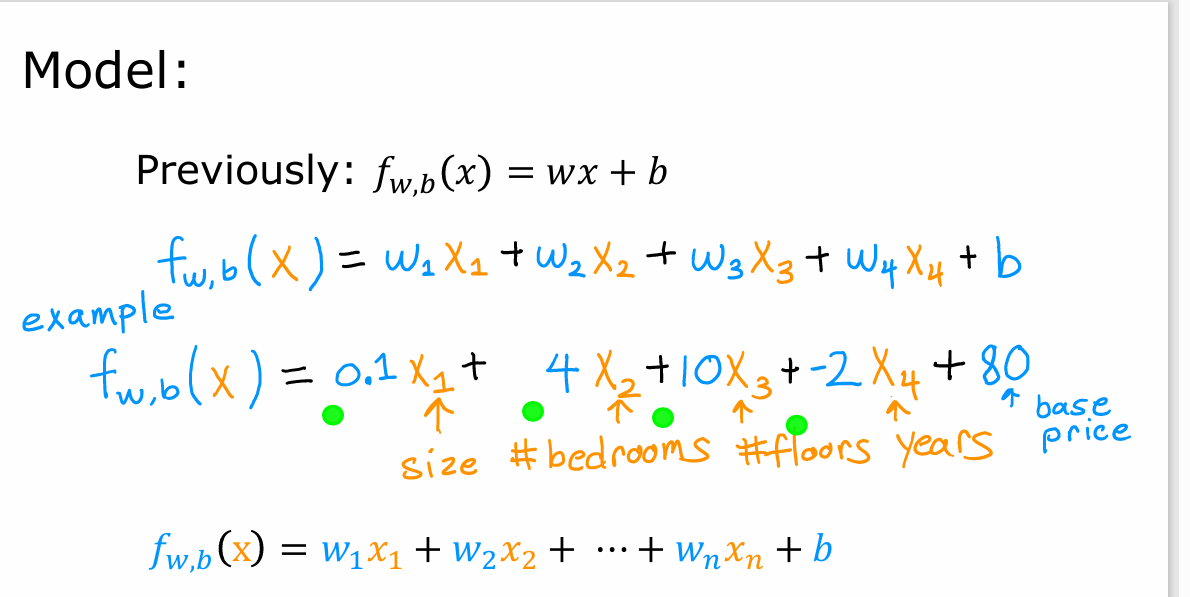 Model:
Previously: f_{w,b}(x) = wx + b
f_{w,b}(x) = w₁x₁ + w₂x₂ + w₃x₃ + w₄x₄ + b
example
f_{w,b}(x) = 0.1x₁ + 4x₂ + 10x₃ + -2x₄ + 80
↑ ↑ ↑ ↑ ↑ base
price
size #bedrooms #floors years
f_{w,b}(x) = w₁x₁ + w₂x₂ + ⋯ + wₙxₙ + b